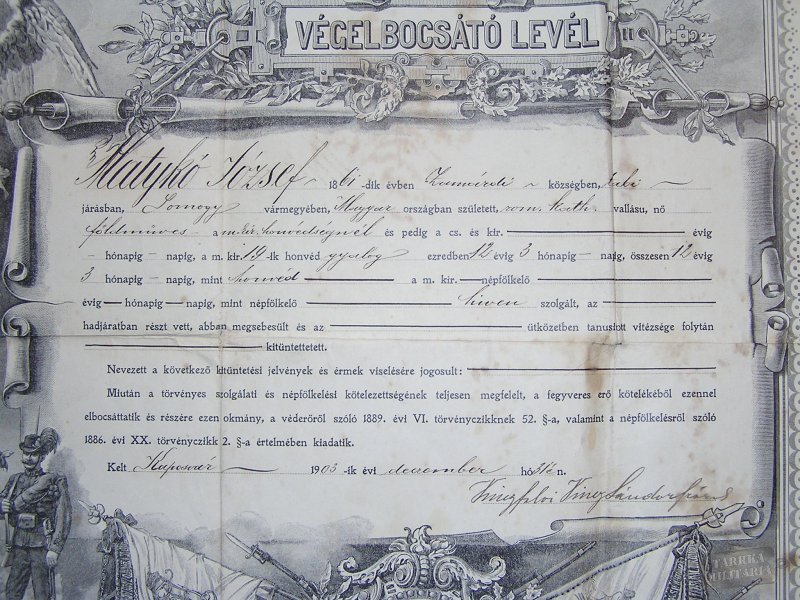 VÉGELBOCSÁTÓ LEVÉL
Matykó József 1861-dik évben Zamárdi községben, tabi
járásban, Somogy vármegyében, Magyar országban született, rom. kath. vallásu, nő
földműves a m. kir. honvédségnél és pedig a cs. és kir. évig
hónapig – napig, a m. kir. 19-ik honvéd gyalog ezredben 12 évig 3 hónapig – napig, összesen 12 évig
3 hónapig – napig, mint honvéd a m. kir. népfölkelő
évig – hónapig – napig, mint népfölkelő híven szolgált, az
hadjáratban részt vett, abban megsebesült és az ütközetben tanusított vitézsége folytán
kitüntettetett.
Nevezett a következő kitüntetési jelvények és érmek viselésére jogosult:
Miután a törvényes szolgálati és népfölkelési kötelezettségének teljesen megfelelt, a fegyveres erő kötelékéből ezennel
elbocsáttatik és részére ezen okmány, a véderőről szóló 1889. évi VI. törvényczikknek 52. §-a, valamint a népfölkelésről szóló
1886. évi XX. törvényczikk 2. §-a értelmében kiadatik.
Kelt Kaposvár 1903-ik évi december hó 31én.
TARRKA
MILITÁRIA